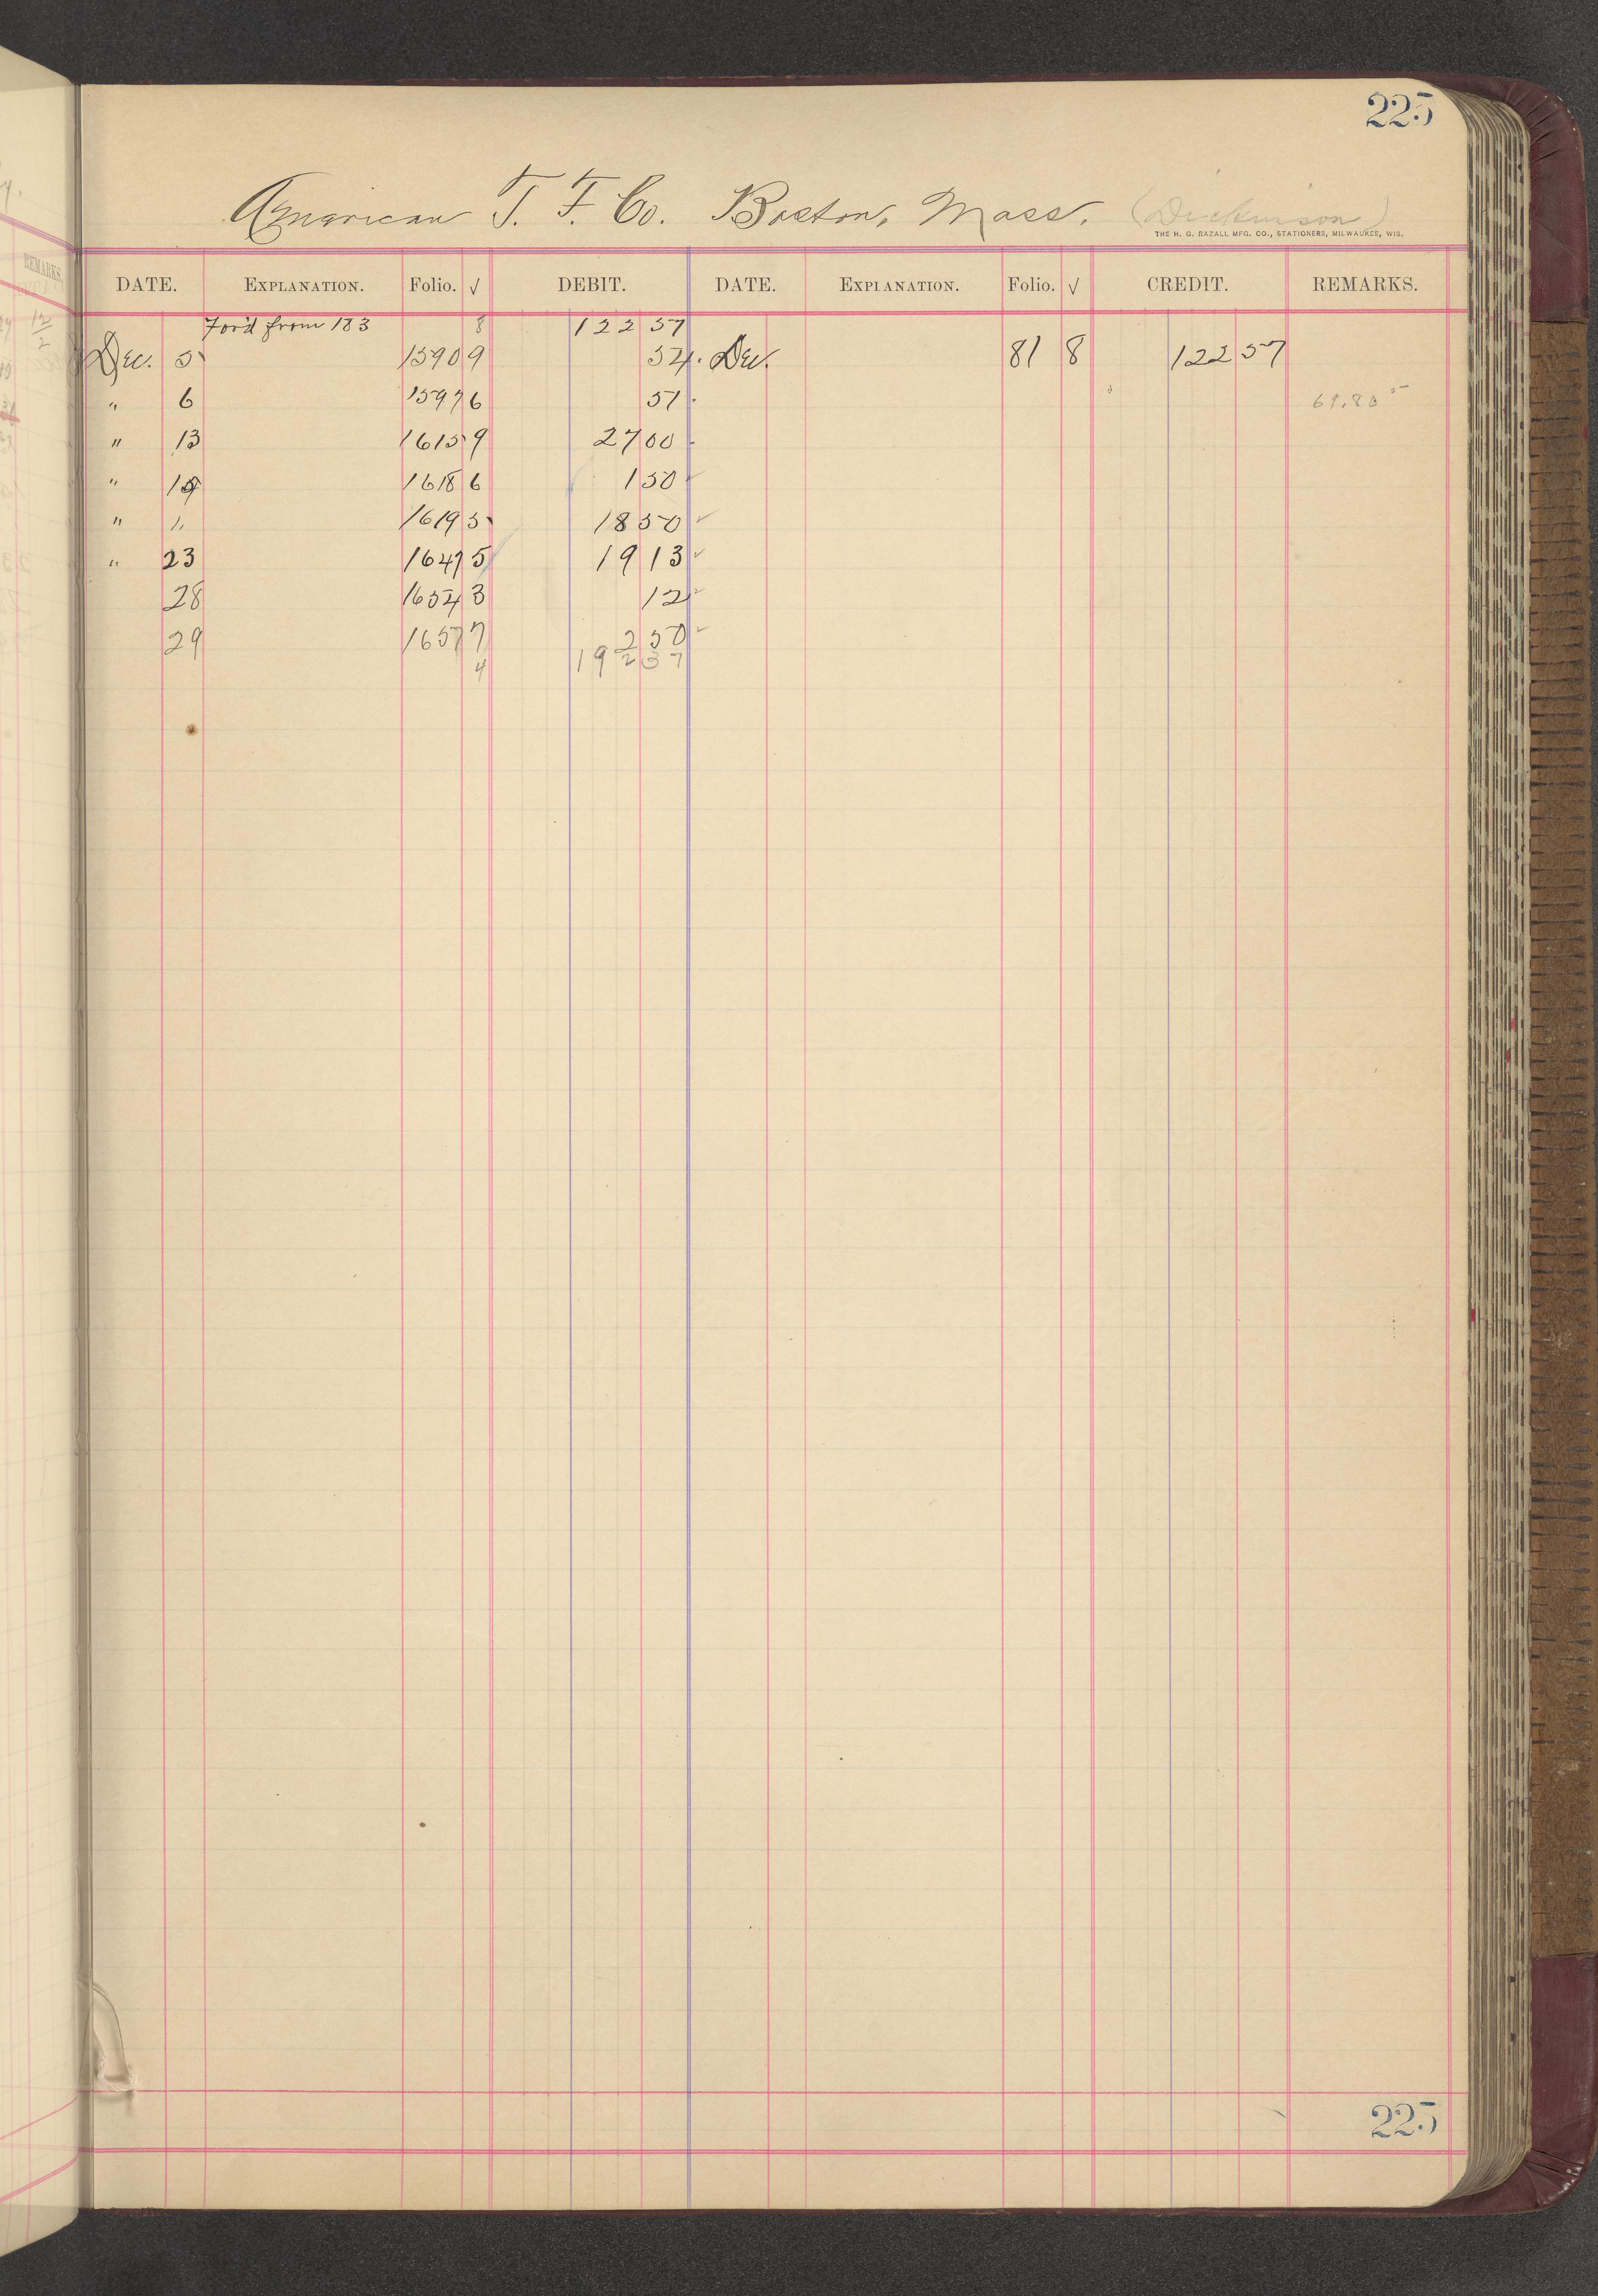 225
American T. F. Co. Boston, Mass. (Dickinson)
THE H. G. RAZALL MFG. CO., STATIONERS, MILWAUKEE, WIS.
DATE. EXPLANATION. Folio. √ DEBIT. DATE. EXPLANATION. Folio. √ CREDIT. REMARKS.
For'd from 183 8 122 57
Dec. 5 15909 54 Dec. 81 8 122 57
" 6 15976 51 69.80
" 13 16159 27 00
" 15 16186 1 50 ✓
" " 16195 18 50 ✓
" 23 16475 19 13 ✓
28 16543 12 ✓
29 16577 2 50 ✓
4 192 37
225